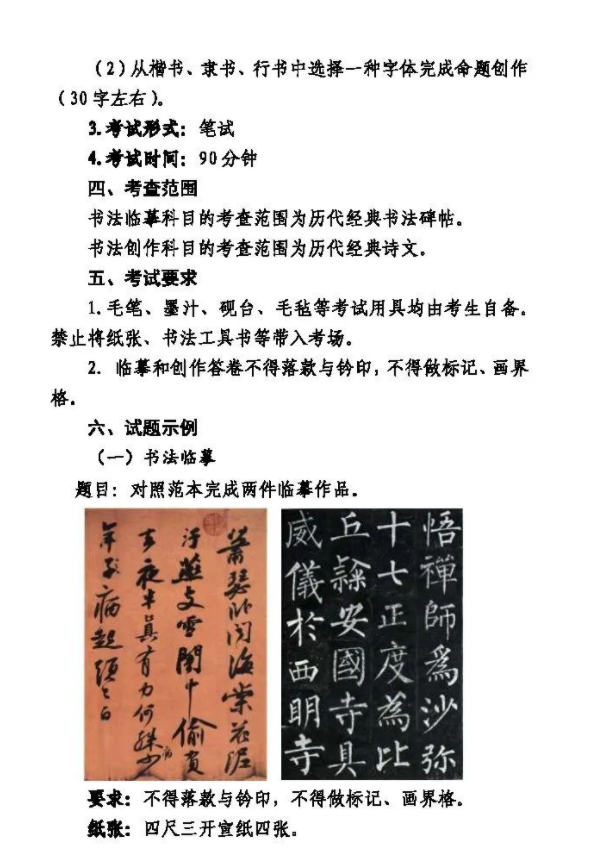 （2）从楷书、隶书、行书中选择一种字体完成命题创作
（30字左右）。
3.考试形式：笔试
4.考试时间：90分钟
四、考查范围
书法临摹科目的考查范围为历代经典书法碑帖。
书法创作科目的考查范围为历代经典诗文。
五、考试要求
1.毛笔、墨汁、砚台、毛毡等考试用具均由考生自备。
禁止将纸张、书法工具书等带入考场。
2. 临摹和创作答卷不得落款与钤印，不得做标记、画界
格。
六、试题示例
（一）书法临摹
题目：对照范本完成两件临摹作品。
蕭瑟卧闻海棠花泥
汙燕支雪闇中偷負
去夜半真有力何殊少
年子病起頭已白
悟禪師為沙弥
十七正度為比
丘隸安國寺具
威儀於西明寺
要求：不得落款与钤印，不得做标记、画界格。
纸张：四尺三开宣纸四张。